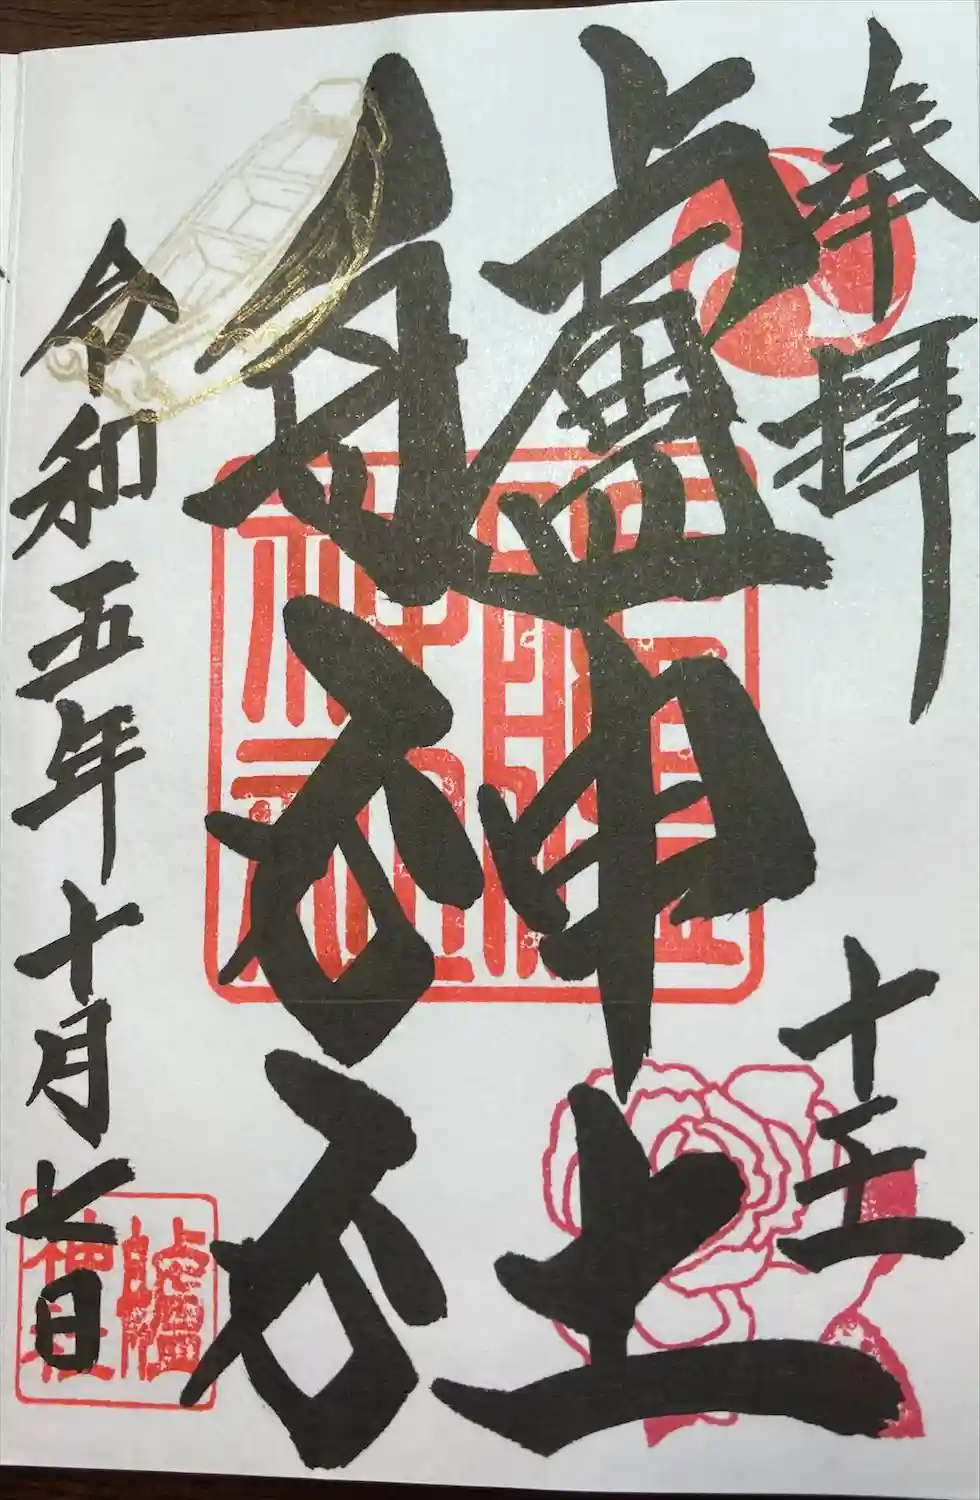 奉拝
十王
艫神社
令和五年十月七日
艫神社
艫神社